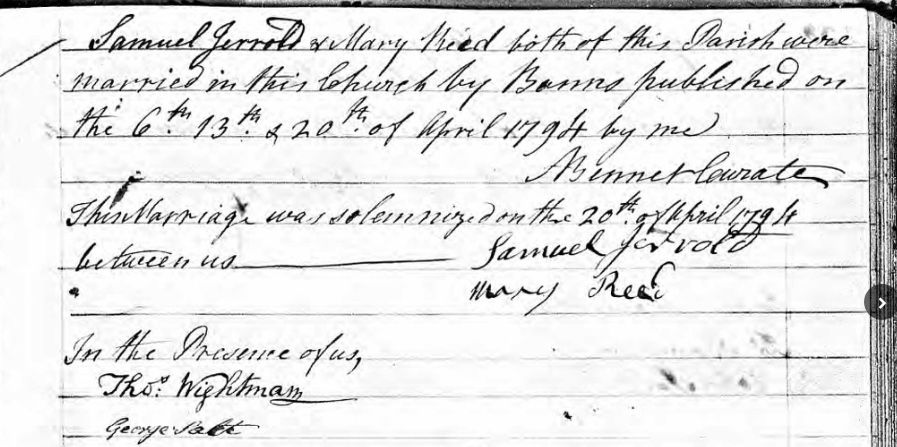 Samuel Jerrold & Mary Reed both of this Parish were
married in this Church by Banns published on
the 6th 13th & 20th of April 1794 by me
Bennet Curate
This Marriage was solemnized on the 20th of April 1794
between us
Samuel Jerrold
Mary Reed
In the Presence of us,
Thos. Wightman
George Salt